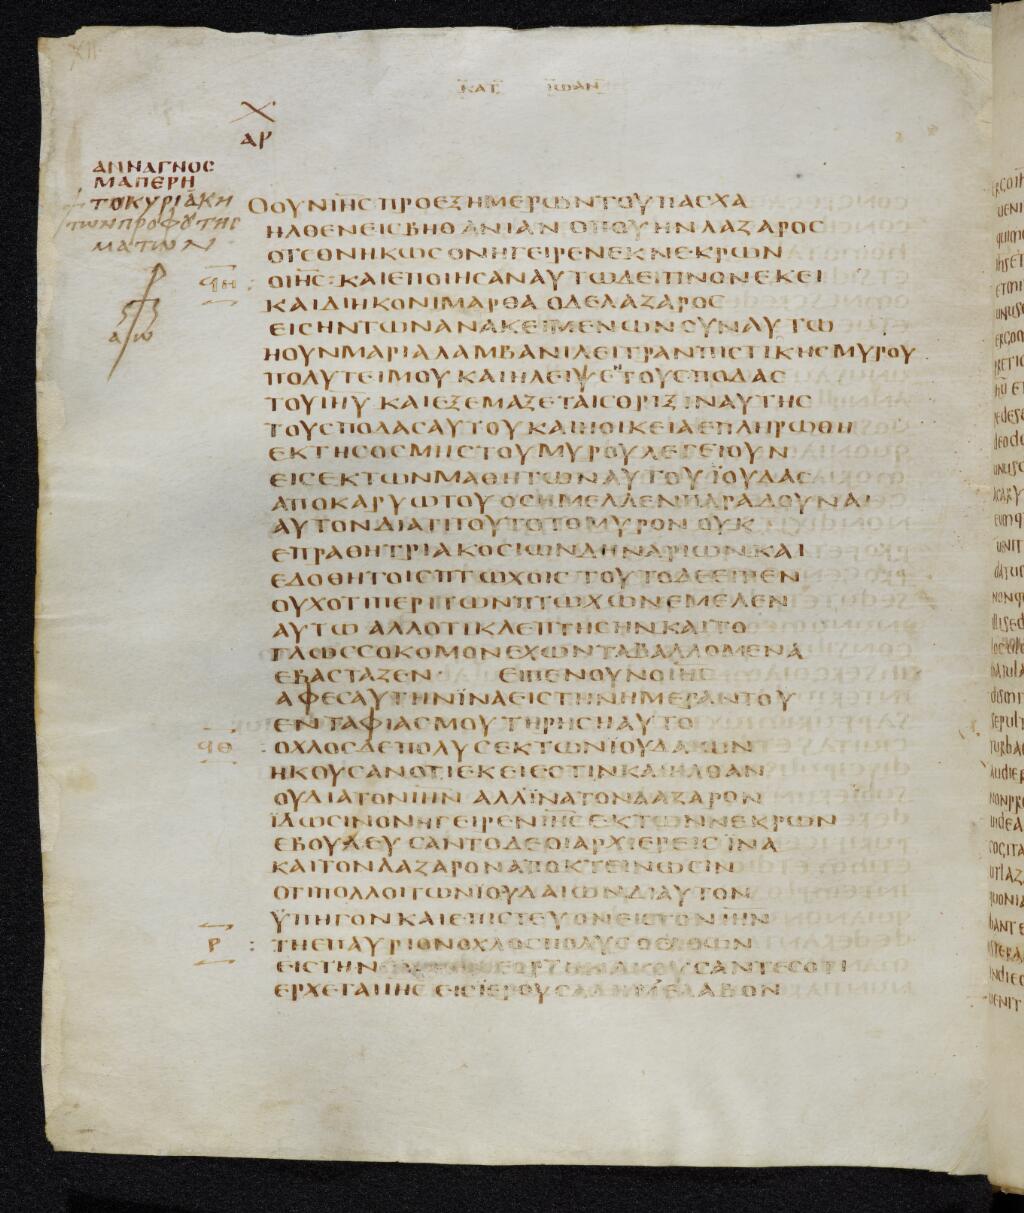 ΚΑΤ ΙΩΑΝ
ΑΡ
ΑΝΝΑΓΝΟC
ΜΑΠΕΡΗ
ΤΟΚΥΡΙΑΚΗ
ΤΩΝΠΡΟΦΥΤΗC
ΜΑΤΩΝ
ΟΟΥΝΙΗCΠΡΟΕΞΗΜΕΡΩΝΤΟΥΠΑCΧΑ
ΗΛΘΕΝΕΙCΒΗΘΑΝΙΑΝΟΠΟΥΗΝΛΑΖΑΡΟC
ΟΤΕΘΝΗΚΩCΟΝΗΓΕΙΡΕΝΕΚΝΕΚΡΩΝ
ϟΗ : ΟΙΗC : ΚΑΙΕΠΟΙΗCΑΝΑΥΤΩΔΕΙΠΝΟΝΕΚΕΙ
ΚΑΙΔΙΗΚΟΝΙΜΑΡΘΑ ΟΔΕΛΑΖΑΡΟC
ΕΙCΗΝΤΩΝΑΝΑΚΕΙΜΕΝΩΝCΥΝΑΥΤΩ
ΗΟΥΝΜΑΡΙΑΛΑΜΒΑΝΙΛΕΙΤΡΑΝΠΙCΤΙΚΗCΜΥΡΟΥ
ΠΟΛΥΤΕΙΜΟΥ ΚΑΙΗΛΕΙΨΕΤΟΥCΠΟΔΑC
ΤΟΥΙΗΥ ΚΑΙΕΞΕΜΑΖΕΤΑΙCΘΡΙΞΙΝΑΥΤΗC
ΤΟΥCΠΟΔΑCΑΥΤΟΥΚΑΙΗΟΙΚΕΙΑΕΠΛΗΡΩΘΗ
ΕΚΤΗCΟCΜΗCΤΟΥΜΥΡΟΥΛΕΓΕΙΟΥΝ
ΕΙCΕΚΤΩΝΜΑΘΗΤΩΝΑΥΤΟΥΪΟΥΔΑC
ΑΠΟΚΑΡΥΩΤΟΥ ΟCΗΜΕΛΛΕΝΠΑΡΑΔΟΥΝΑΙ
ΑΥΤΟΝΔΙΑΤΙΤΟΥΤΟΤΟΜΥΡΟΝ ΟΥΚ
ΕΠΡΑΘΗΤΡΙΑΚΟCΙΩΝΔΗΝΑΡΙΩΝΚΑΙ
ΕΔΟΘΗΤΟΙCΠΤΩΧΟΙC ΤΟΥΤΟΔΕΕΙΠΕΝ
ΟΥΧΟΤΙΠΕΡΙΤΩΝΠΤΩΧΩΝΕΜΕΛΕΝ
ΑΥΤΩ ΑΛΛΟΤΙΚΛΕΠΤΗCΗΝΚΑΙΤΟ
ΓΛΩCCΟΚΟΜΟΝΕΧΩΝΤΑΒΑΛΛΟΜΕΝΑ
ΕΒΑCΤΑΖΕΝ· ΕΙΠΕΝΟΥΝΟΙΗC
ΑΦΕCΑΥΤΗΝΪΝΑΕΙCΤΗΝΗΜΕΡΑΝΤΟΥ
ΕΝΤΑΦΙΑCΜΟΥΤΗΡΗCΗΑΥΤΟ
ϟΘ : ΟΧΛΟCΔΕΠΟΛΥCΕΚΤΩΝΪΟΥΔΑΙΩΝ
ΗΚΟΥCΑΝΟΤΙΕΚΕΙΕCΤΙΝΚΑΙΗΛΘΑΝ
ΟΥΔΙΑΤΟΝΙΗΝ ΑΛΛΪΝΑΤΟΝΛΑΖΑΡΟΝ
ΪΔΩCΙΝΟΝΗΓΕΙΡΕΝΙΗCΕΚΤΩΝΝΕΚΡΩΝ
ΕΒΟΥΛΕΥCΑΝΤΟΔΕΟΙΑΡΧΙΕΡΕΙCΪΝΑ
ΚΑΙΤΟΝΛΑΖΑΡΟΝΑΠΟΚΤΕΙΝΩCΙΝ
ΟΤΙΠΟΛΛΟΙΤΩΝΪΟΥΔΑΙΩΝΔΙΑΥΤΟΝ
ΫΠΗΓΟΝΚΑΙΕΠΙCΤΕΥΟΝΕΙCΤΟΝΙΗΝ
Ρ : ΤΗΕΠΑΥΡΙΟΝΟΧΛΟCΠΟΛΥCΟΕΛΘΩΝ
ΕΙCΤΗΝ ΕΟΡΤΗΝΑΚΟΥCΑΝΤΕCΟΤΙ
ΕΡΧΕΤΑΙΙΗC ΕΙCΪΕΡΟΥCΑΛΗΜΕΛΑΒΟΝ